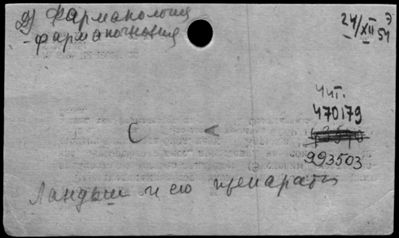 2) Фармакология
- фармакогнозия
24/XII 54
Э
Чит.
470179
993503
С <
Ландыш и его препараты